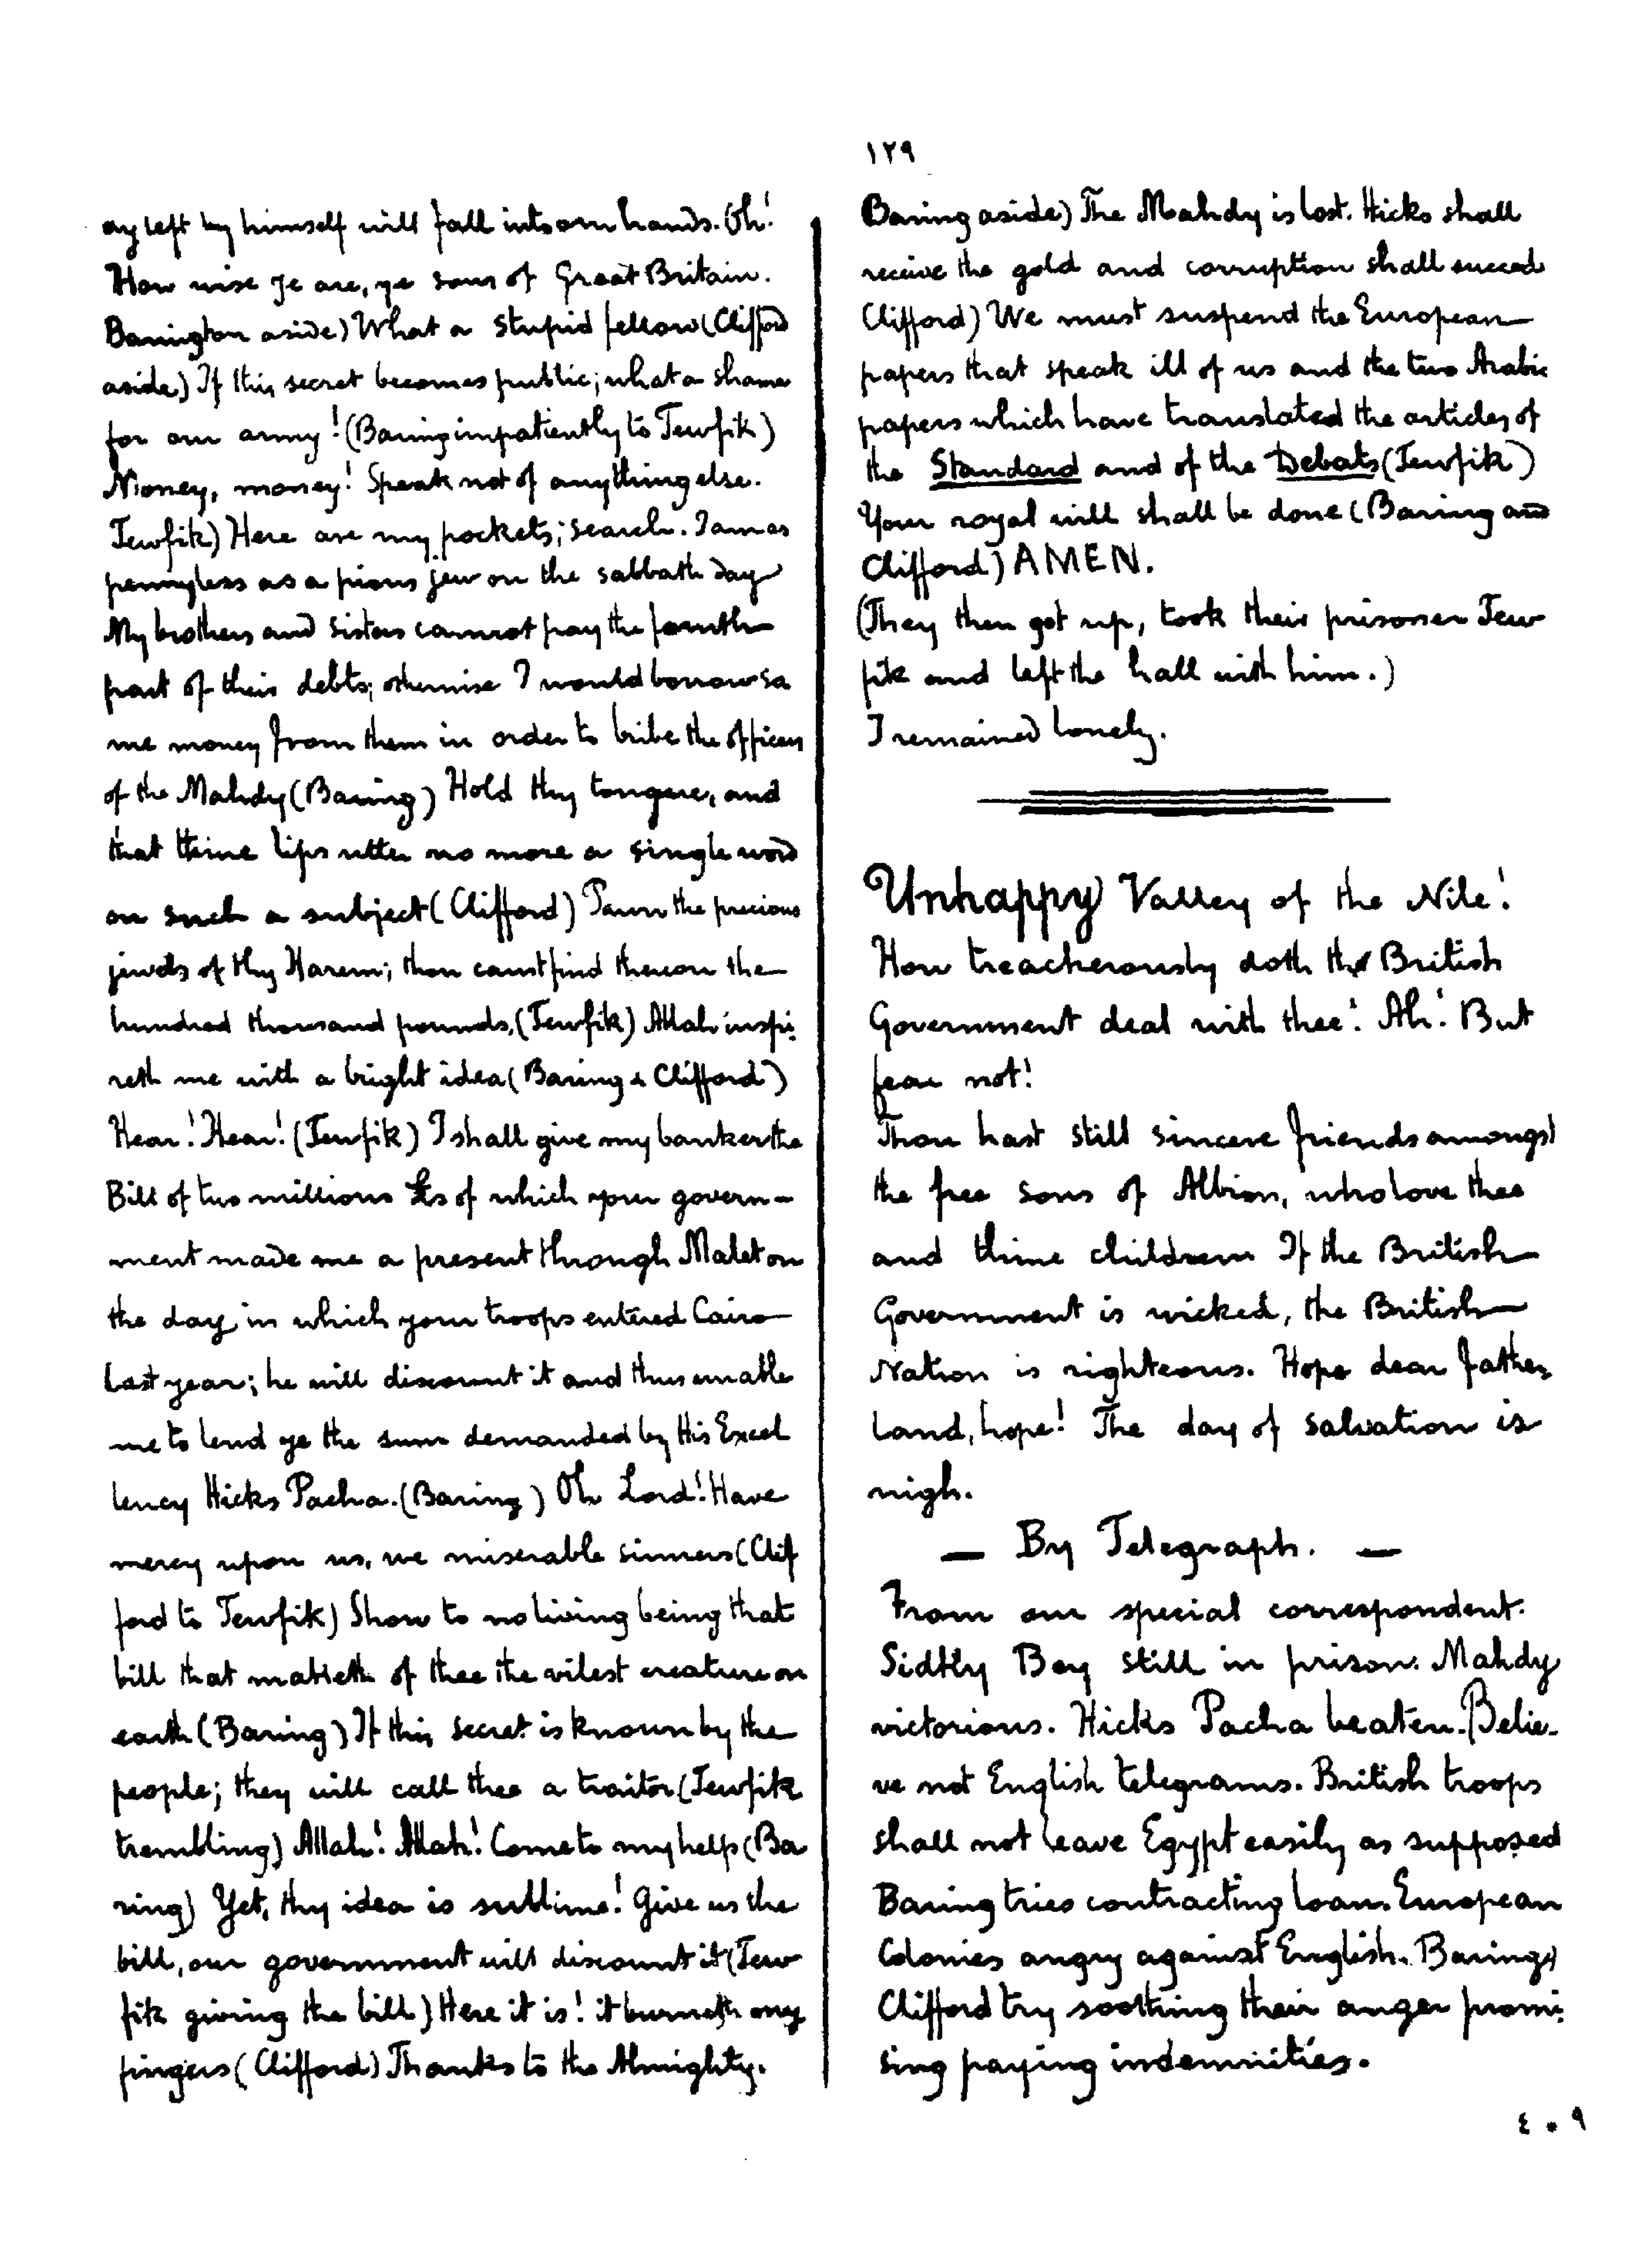 ١٢٩
ay left by himself will fall into our hands. Oh!
How wise ye are, ye sons of Great Britain.
Barington aside) What a stupid fellow (Clifford
aside) If this secret becomes public; what a shame
for our army! (Baring impatiently to Tewfik)
Money, money! Speak not of anything else.
Tewfik) Here are my pockets; search. I am as
pennyless as a pious jew on the sabbath day
My brothers and sisters cannot pay the fourth
part of their debts; otherwise I would borrow so
me money from them in order to bribe the officers
of the Mahdy (Baring) Hold thy tongue, and
that thine lips utter no more a single word
on such a subject (Clifford) Pawn the precious
jewels of thy Harem; thou canst find thereon the
hundred thousand pounds, (Tewfik) Allah inspi-
reth me with a bright idea (Baring & Clifford)
Hear! Hear! (Tewfik) I shall give my banker the
Bill of two millions £s of which your govern-
ment made me a present through Malet on
the day in which your troops entered Cairo
last year; he will discount it and thus enable
me to lend ye the sum demanded by His Excel
lency Hicks Pacha. (Baring) Oh Lord! Have
mercy upon us, we miserable sinners (Clif
ford to Tewfik) Show to no living being that
bill that maketh of thee the vilest creature on
earth (Baring) If this secret is known by the
people; they will call thee a traitor (Tewfik
trembling) Allah! Allah! Come to my help (Ba
ring) Yet, thy idea is sublime! Give us the
bill, our government will discount it (Tew
fik giving the bill) Here it is! it burneth my
fingers (Clifford) Thanks to the Almighty.
Baring aside) The Mahdy is lost. Hicks shall
receive the gold and corruption shall succeed
Clifford) We must suspend the European
papers that speak ill of us and the two Arabic
papers which have translated the articles of
the Standard and of the Debats (Tewfik)
Your royal will shall be done (Baring and
Clifford) AMEN.
(They then got up, took their prisoner Tew
fik and left the hall with him.)
I remained lonely.
Unhappy Valley of the Nile!
How treacherously doth the British
Government deal with thee! Ah! But
fear not!
Thou hast still sincere friends amongst
the free sons of Albion, who love thee
and thine children If the British
Government is wicked, the British
Nation is righteous. Hope dear father
land, hope! The day of salvation is
nigh.
— By Telegraph. —
From our special correspondent.
Sidtly Bey still in prison. Mahdy
victorious. Hicks Pacha beaten. Belie-
ve not English telegrams. British troops
shall not leave Egypt easily as supposed
Baring tries contracting loan. European
Colonies angry against English. Baring &
Clifford try soothing their anger promi-
sing paying indemnities.
٤٠٩